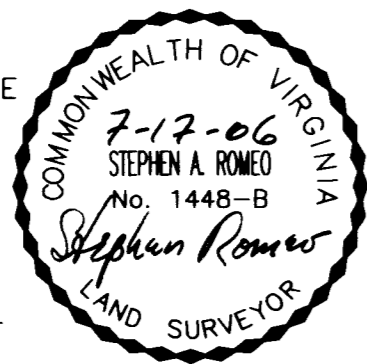 E
COMMONWEALTH OF VIRGINIA
7-17-06
STEPHEN A. ROMEO
No. 1448-B
Stephen Romeo
LAND SURVEYOR